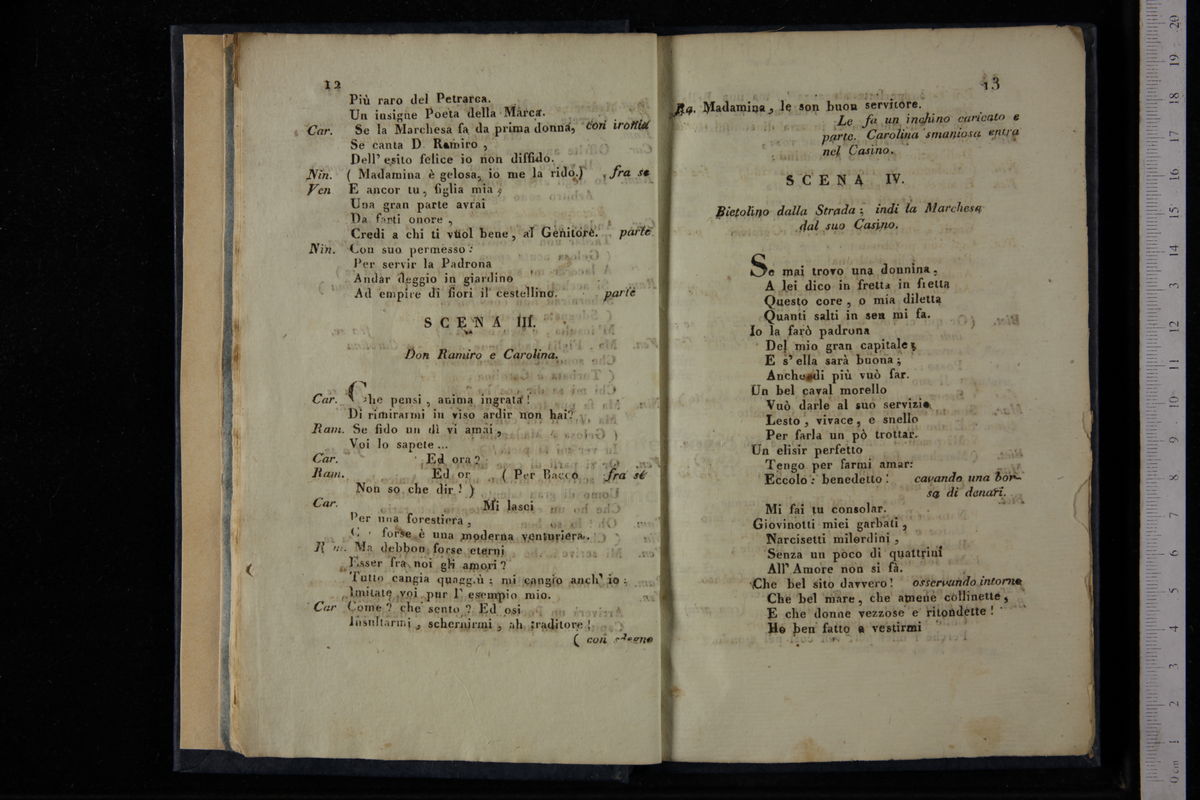 12
Più raro del Petrarca.
Un insigne Poeta della Marca.
Car. Se la Marchesa fa da prima donna, con ironia
Se canta D. Ramiro ,
Dell' esito felice io non diffido.
Nin. ( Madamina è gelosa, io me la rido.) fra se
Ven E ancor tu, figlia mia ,
Una gran parte avrai
Da farti onore ,
Credi a chi ti vuol bene, al Genitore. parte
Nin. Con suo permesso :
Per servir la Padrona
Andar deggio in giardino
Ad empire di fiori il cestellino. parte
SCENA III.
Don Ramiro e Carolina.
Car. Che pensi , anima ingrata !
Di rimirarmi in viso ardir non hai?
Ram. Se fido un dì vi amai ,
Voi lo sapete ...
Car. Ed ora ?
Ram. Ed or ( Per Bacco fra sè
Non so che dir ! )
Car. Mi lasci
Per una forestiera ,
forse è una moderna venturiera.
Ram. Ma debbon forse eterni
Esser fra noi gli amori ?
Tutto cangia quaggiù ; mi cangio anch' io :
Imitate voi pur l' esempio mio.
Car Come ? che sento ? Ed osi
Insultarmi , schernirmi , ah traditore !
( con sdegno
13
Ra. Madamina, le son buon servitore.
Le fa un inchino caricato e
parte. Carolina smaniosa entra
nel Casino.
SCENA IV.
Bietolino dalla Strada ; indi la Marchesa
dal suo Casino.
Se mai trovo una donnina ,
A lei dico in fretta in fretta
Questo core , o mia diletta
Quanti salti in sen mi fa.
Io la farò padrona
Del mio gran capitale ;
E s' ella sarà buona ;
Anche di più vuò far.
Un bel caval morello
Vuò darle al suo servizio
Lesto , vivace, e snello
Per farla un pò trottar.
Un elisir perfetto
Tengo per farmi amar:
Eccolo : benedetto ! cavando una bor-
sa di denari.
Mi fai tu consolar.
Giovinotti miei garbati ,
Narcisetti milordini ,
Senza un poco di quattrini
All' Amore non si fà.
Che bel sito davvero ! osservando intorno
Che bel mare, che amene collinette,
E che donne vezzose e ritondette !
Ho ben fatto a vestirmi
20
19
18
17
16
15
14
13
12
11
10
9
8
7
6
5
4
3
2
1
0 cm